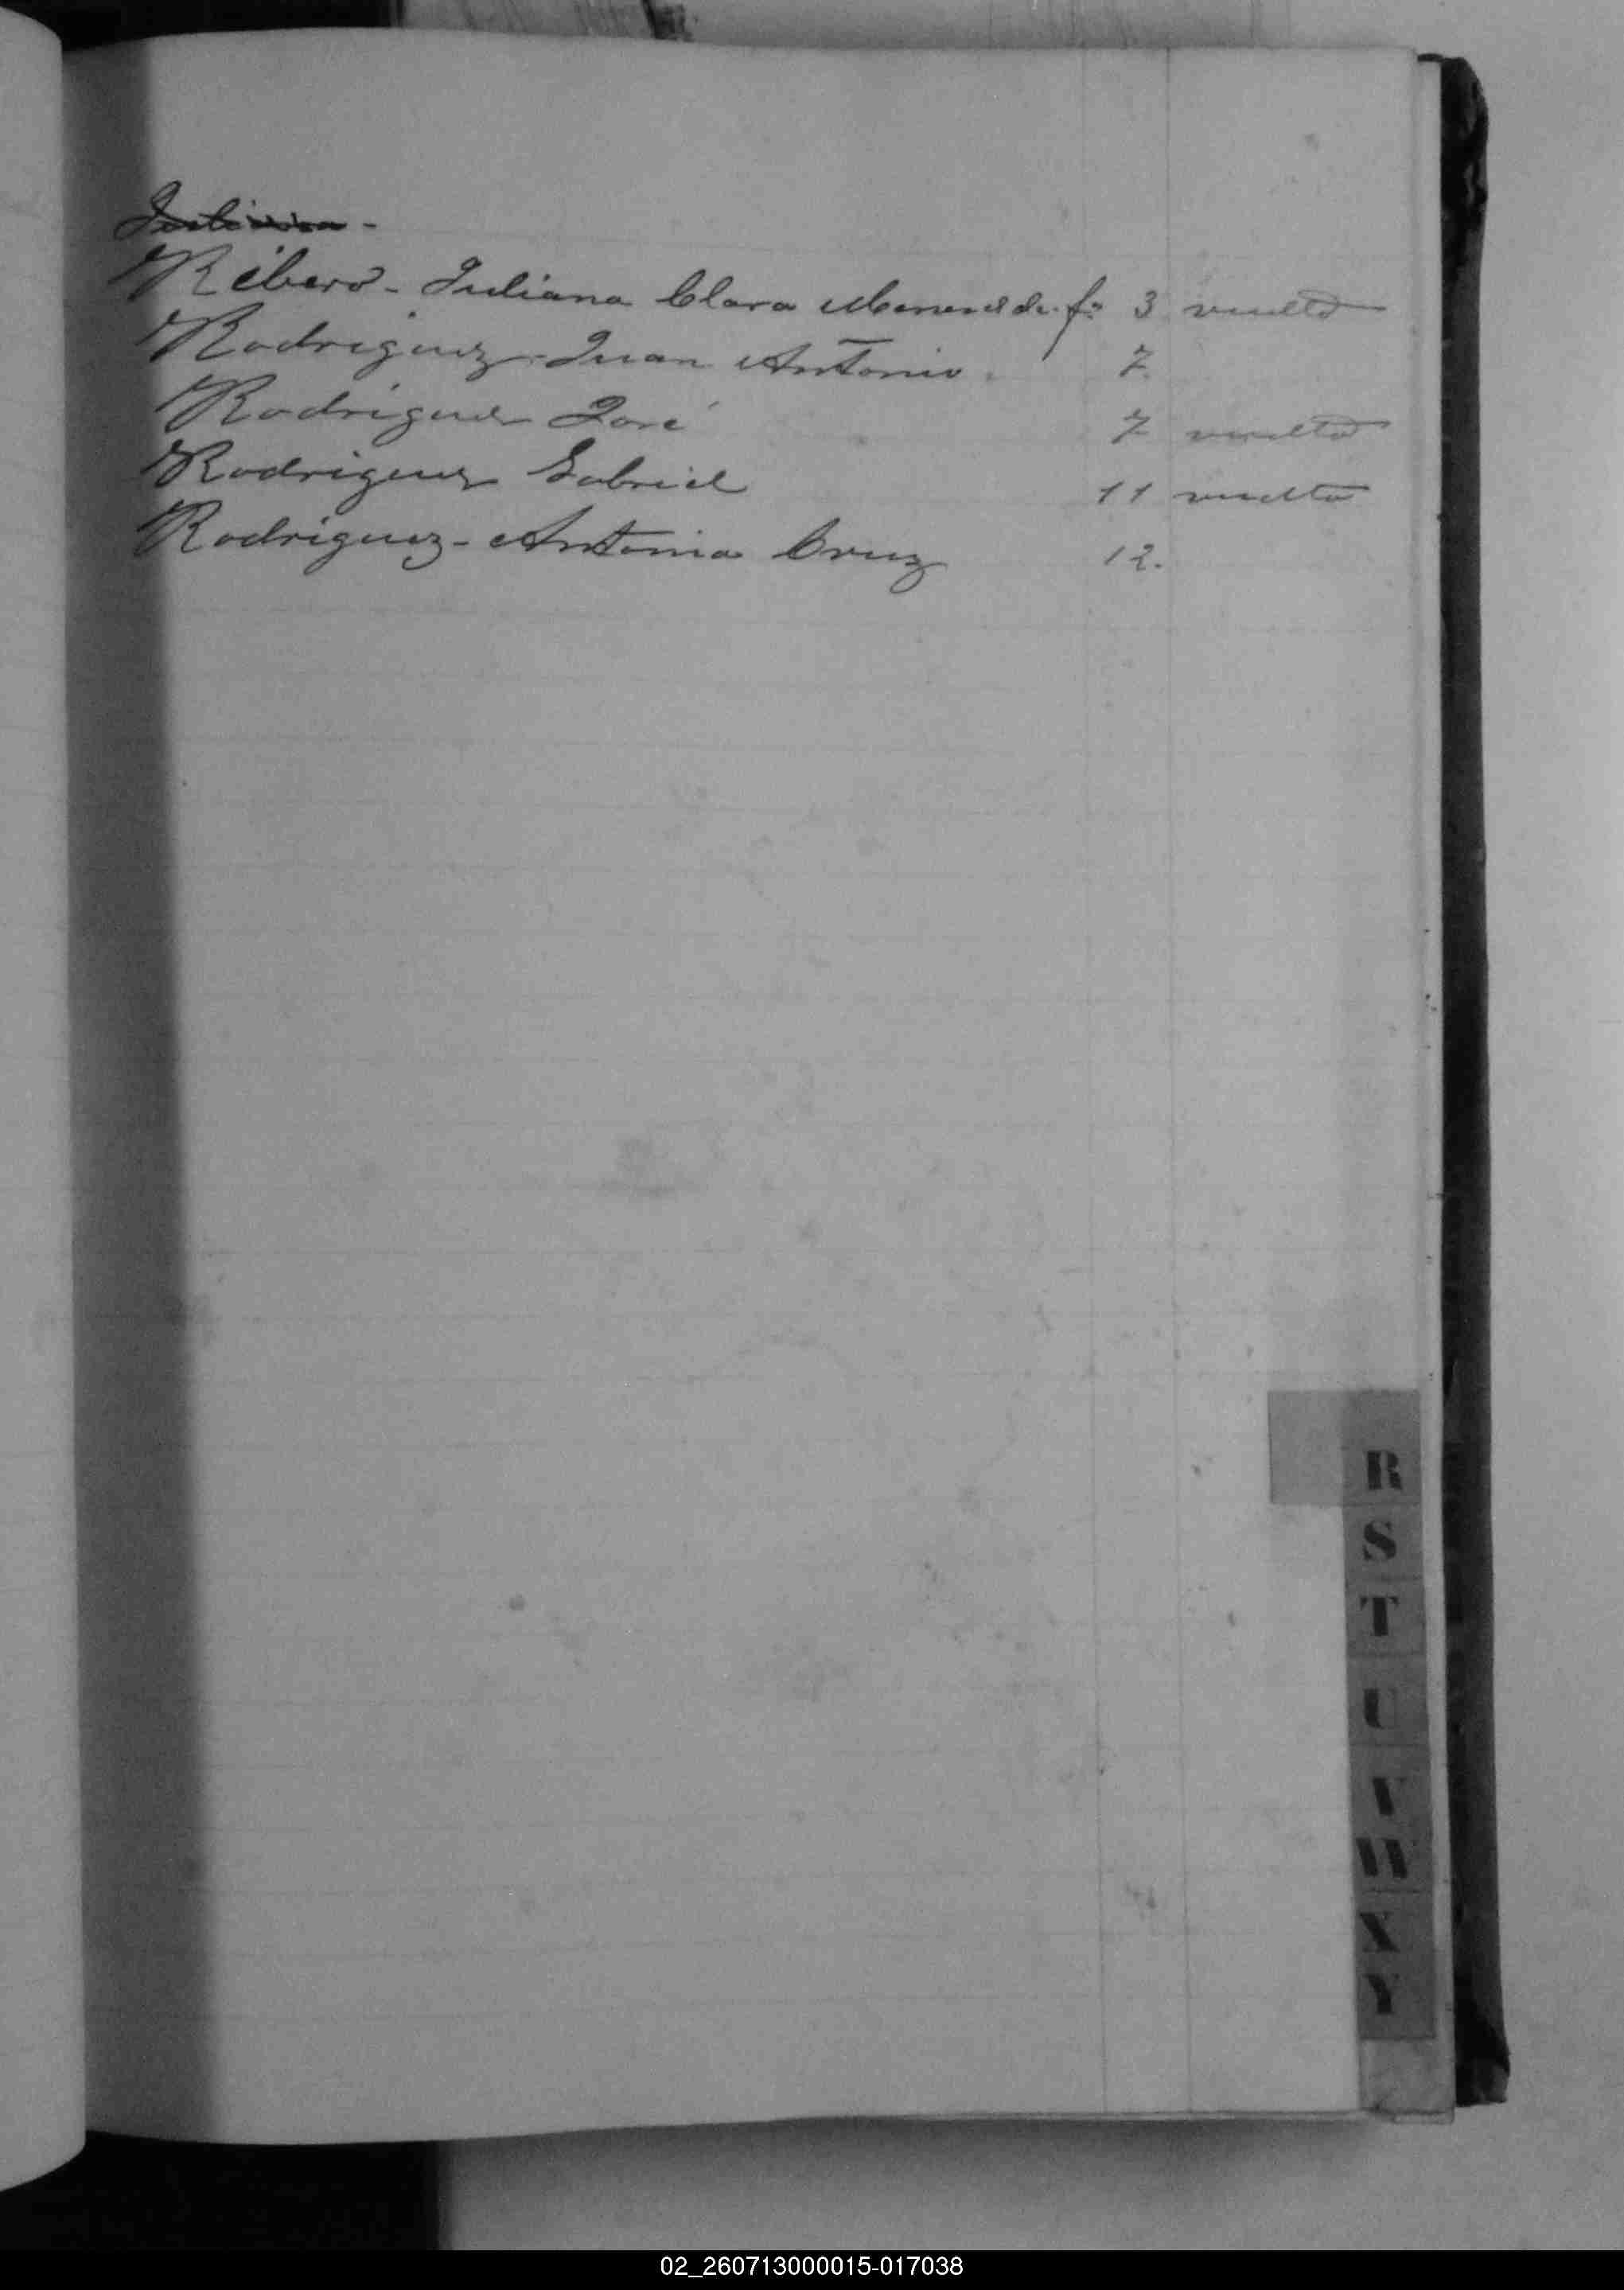 Ribero - Juliana Clara Menend de. fo 3 vuelto
Rodriguez - Juan Antonio. 7.
Rodriguez José 7 vuelto
Rodriguez Gabriel 11 vuelto
Rodriguez - Antonia Cruz 12.
R
S
T
U
V
W
X
Y
02_260713000015-017038